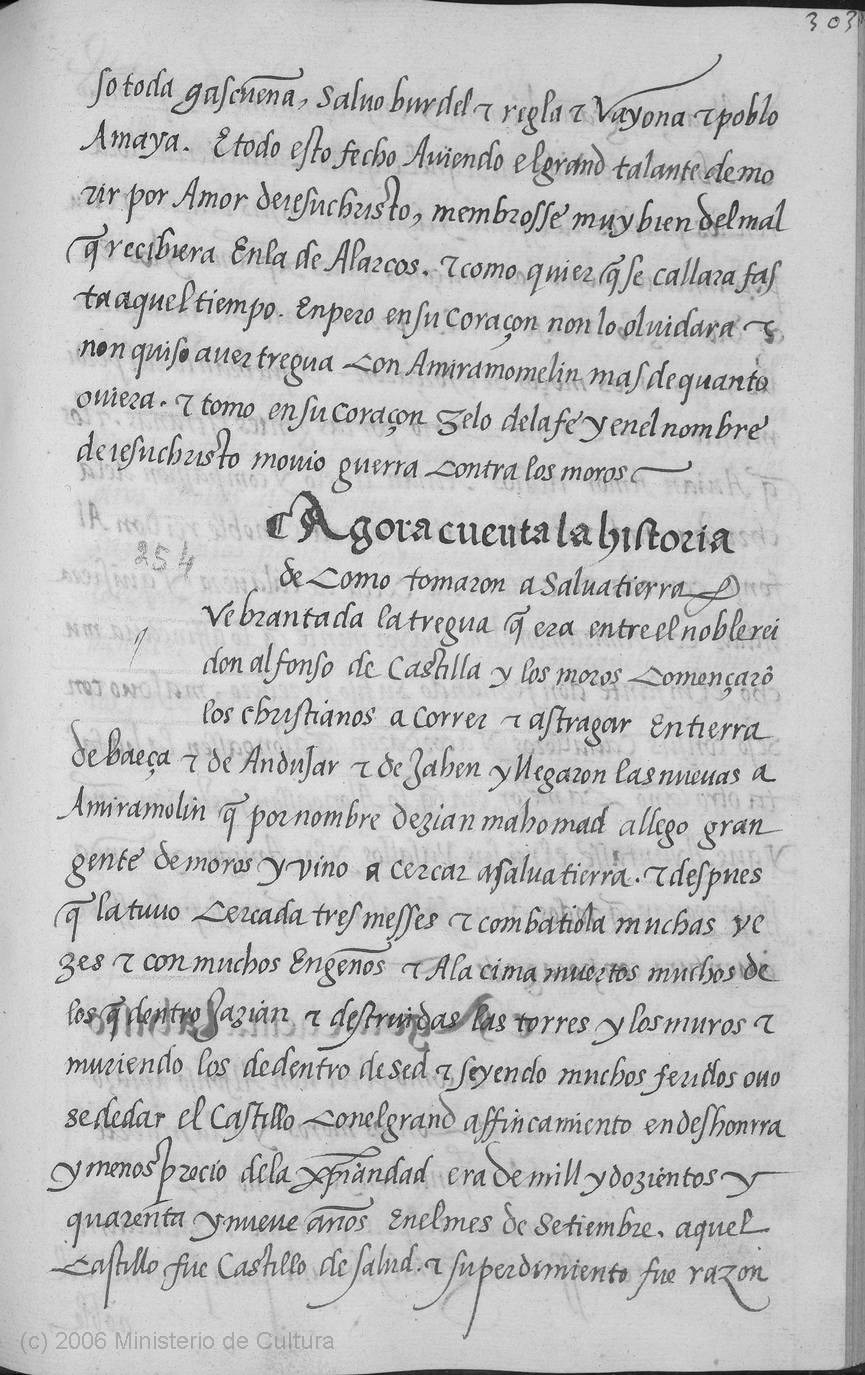 303
so toda gascueña, salvo burdel τ regla τ Vayona τ poblo
Amaya. E todo esto fecho Aviendo el grand talante de mo
rir por Amor de iesuchristo, membrosse muy bien del mal
q̃ recibiera En la de Alarcos. τ como quier q̃ se callara fas
ta aquel tiempo. Enpero en su coraçon non lo olvidara τ
non quiso aver tregua con Amiramomelin mas de quanto
oviera. τ tomo en su coraçon zelo de la fe y en el nombre
de iesuchristo movio guerra contra los moros
Agora cuenta la historia
254
de como tomaron a Salvatierra
Vebrantada la tregua q̃ era entre el noble rei
don alfonso de Castilla y los moros començarõ
los christianos a correr τ astragar En tierra
de baeça τ de Andujar τ de Jahen y llegaron las nuevas a
Amiramolin q̃ por nombre dezian mahomad allego gran
gente de moros y vino a cercar a salvatierra. τ despues
q̃ la tuvo cercada tres messes τ combatiola muchas ve
zes τ con muchos Engeños τ A la cima muertos muchos de
los q̃ dentro jazian τ destruidas las torres y los muros τ
muriendo los de dentro de sed τ seyendo muchos feridos ovo
se de dar el Castillo con el grand affincamiento en deshonrra
y menosprecio de la xp̃iandad era de mill y dozientos y
quarenta y nueve años En el mes de Setiembre. aquel
Castillo fue Castillo de salud. τ su perdimiento fue razon
(c) 2006 Ministerio de Cultura